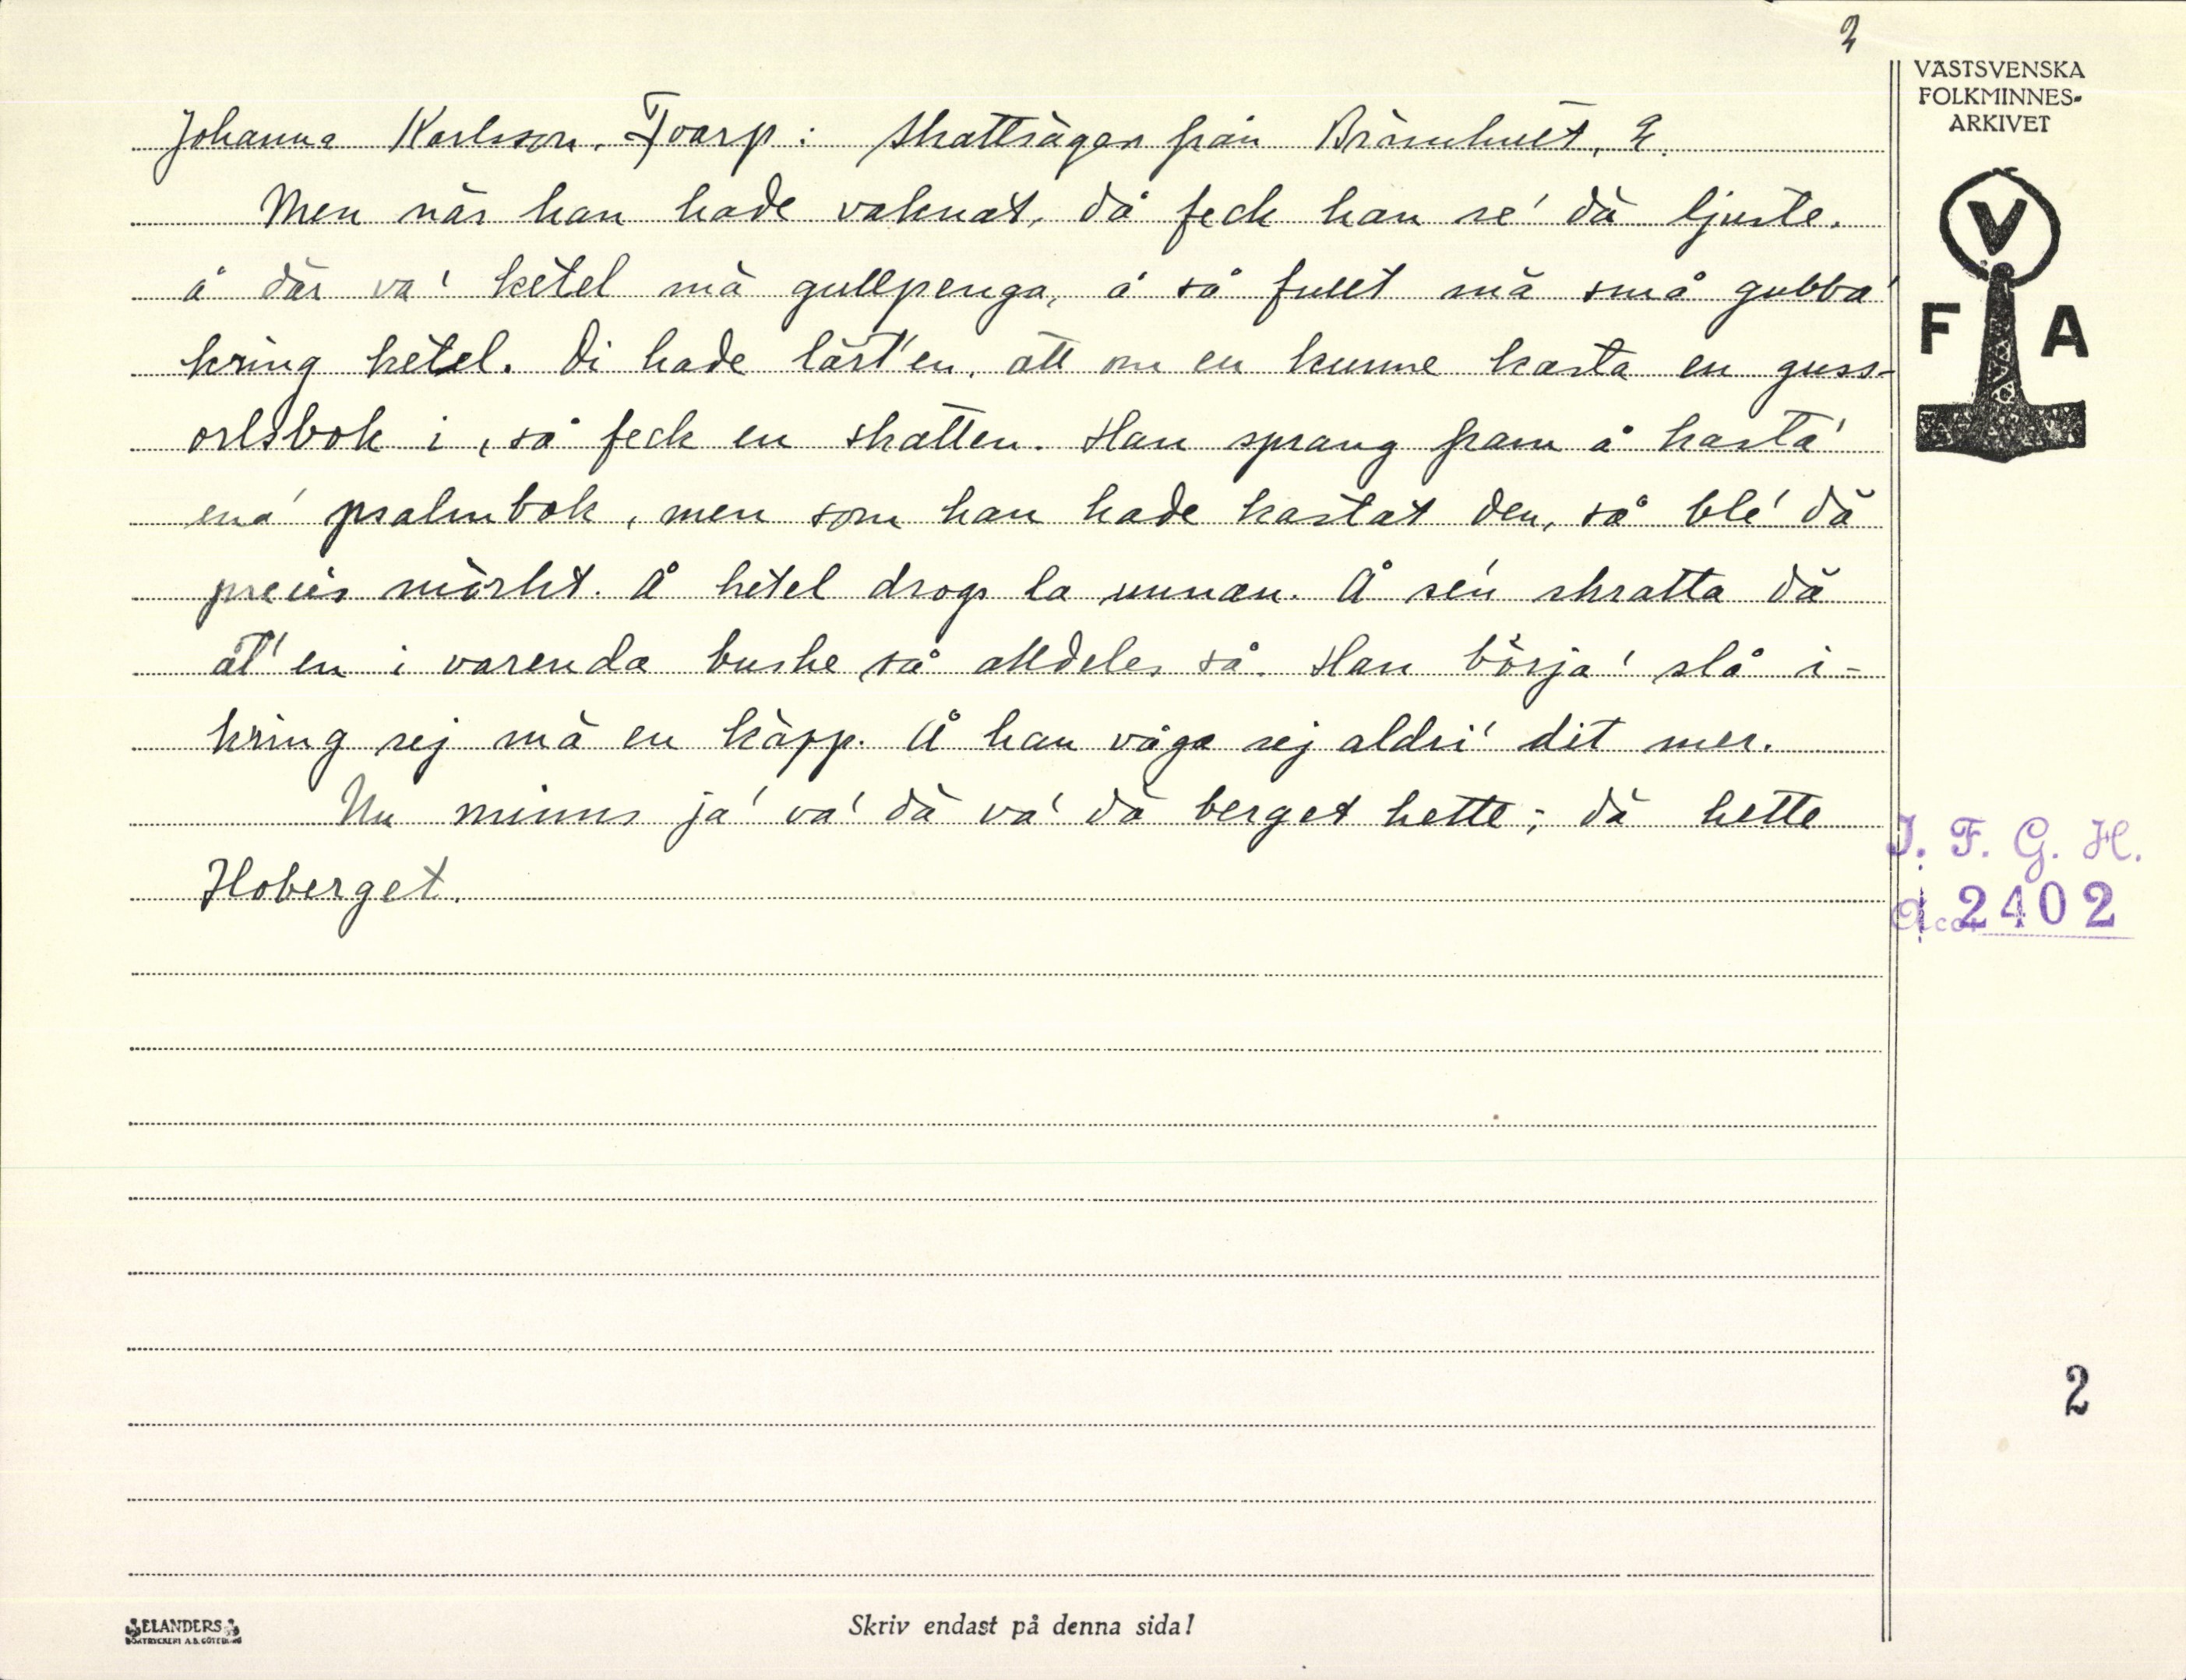 2
VÄSTSVENSKA
FOLKMINNES-
ARKIVET
Johanna Karlsson, Toarp: Skattsägen från Brämhult, 2.
Men när han hade vaknat, då feck han se' dä ljuste.
å där va' ketel mä gullpenga, å så fullt mä små gubba'
kring ketel. Di hade lärt'en, att om en kunne kasta en guss-
orlsbok i, så feck en skatten. Han sprang fram å kasta'
ena' psalmbok, men som han hade kastat den, så ble' dä
precis mörkt. Å ketel drogs la unnan. Å se'n skratta dä
åt'en i varenda buske så alldeles så. Han börja' slå i-
kring sej mä en käpp. Å han våga sej aldri' dit mer.
Nu minns ja' va' dä va' dä berget hette; dä hette
Hoberget.
V
F A
I. F. G. H.
Acc. 2402
2
ELANDERS
BOKTRYCKERI A.B. GÖTEBORG
Skriv endast på denna sida!